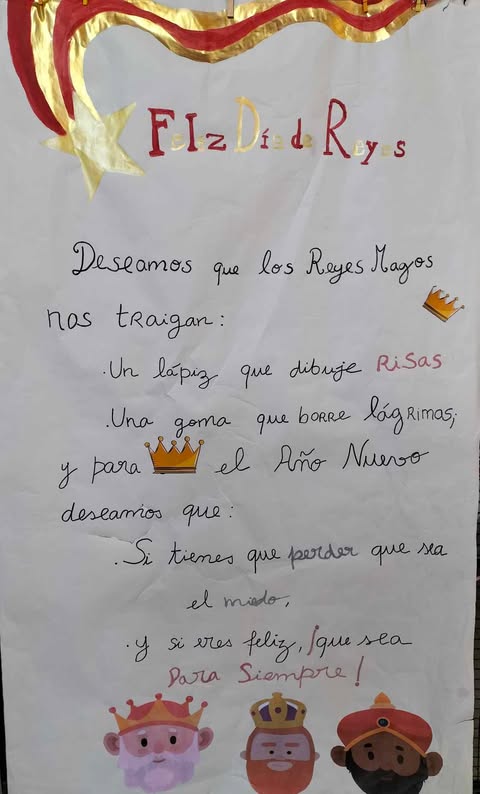 Feliz Día de Reyes
Deseamos que los Reyes Magos
nos traigan:
·Un lápiz que dibuje Risas
·Una goma que borre lágrimas;
y para el Año Nuevo
deseamos que:
·Si tienes que perder que sea
el miedo,
·y si eres feliz, ¡que sea
Para Siempre!